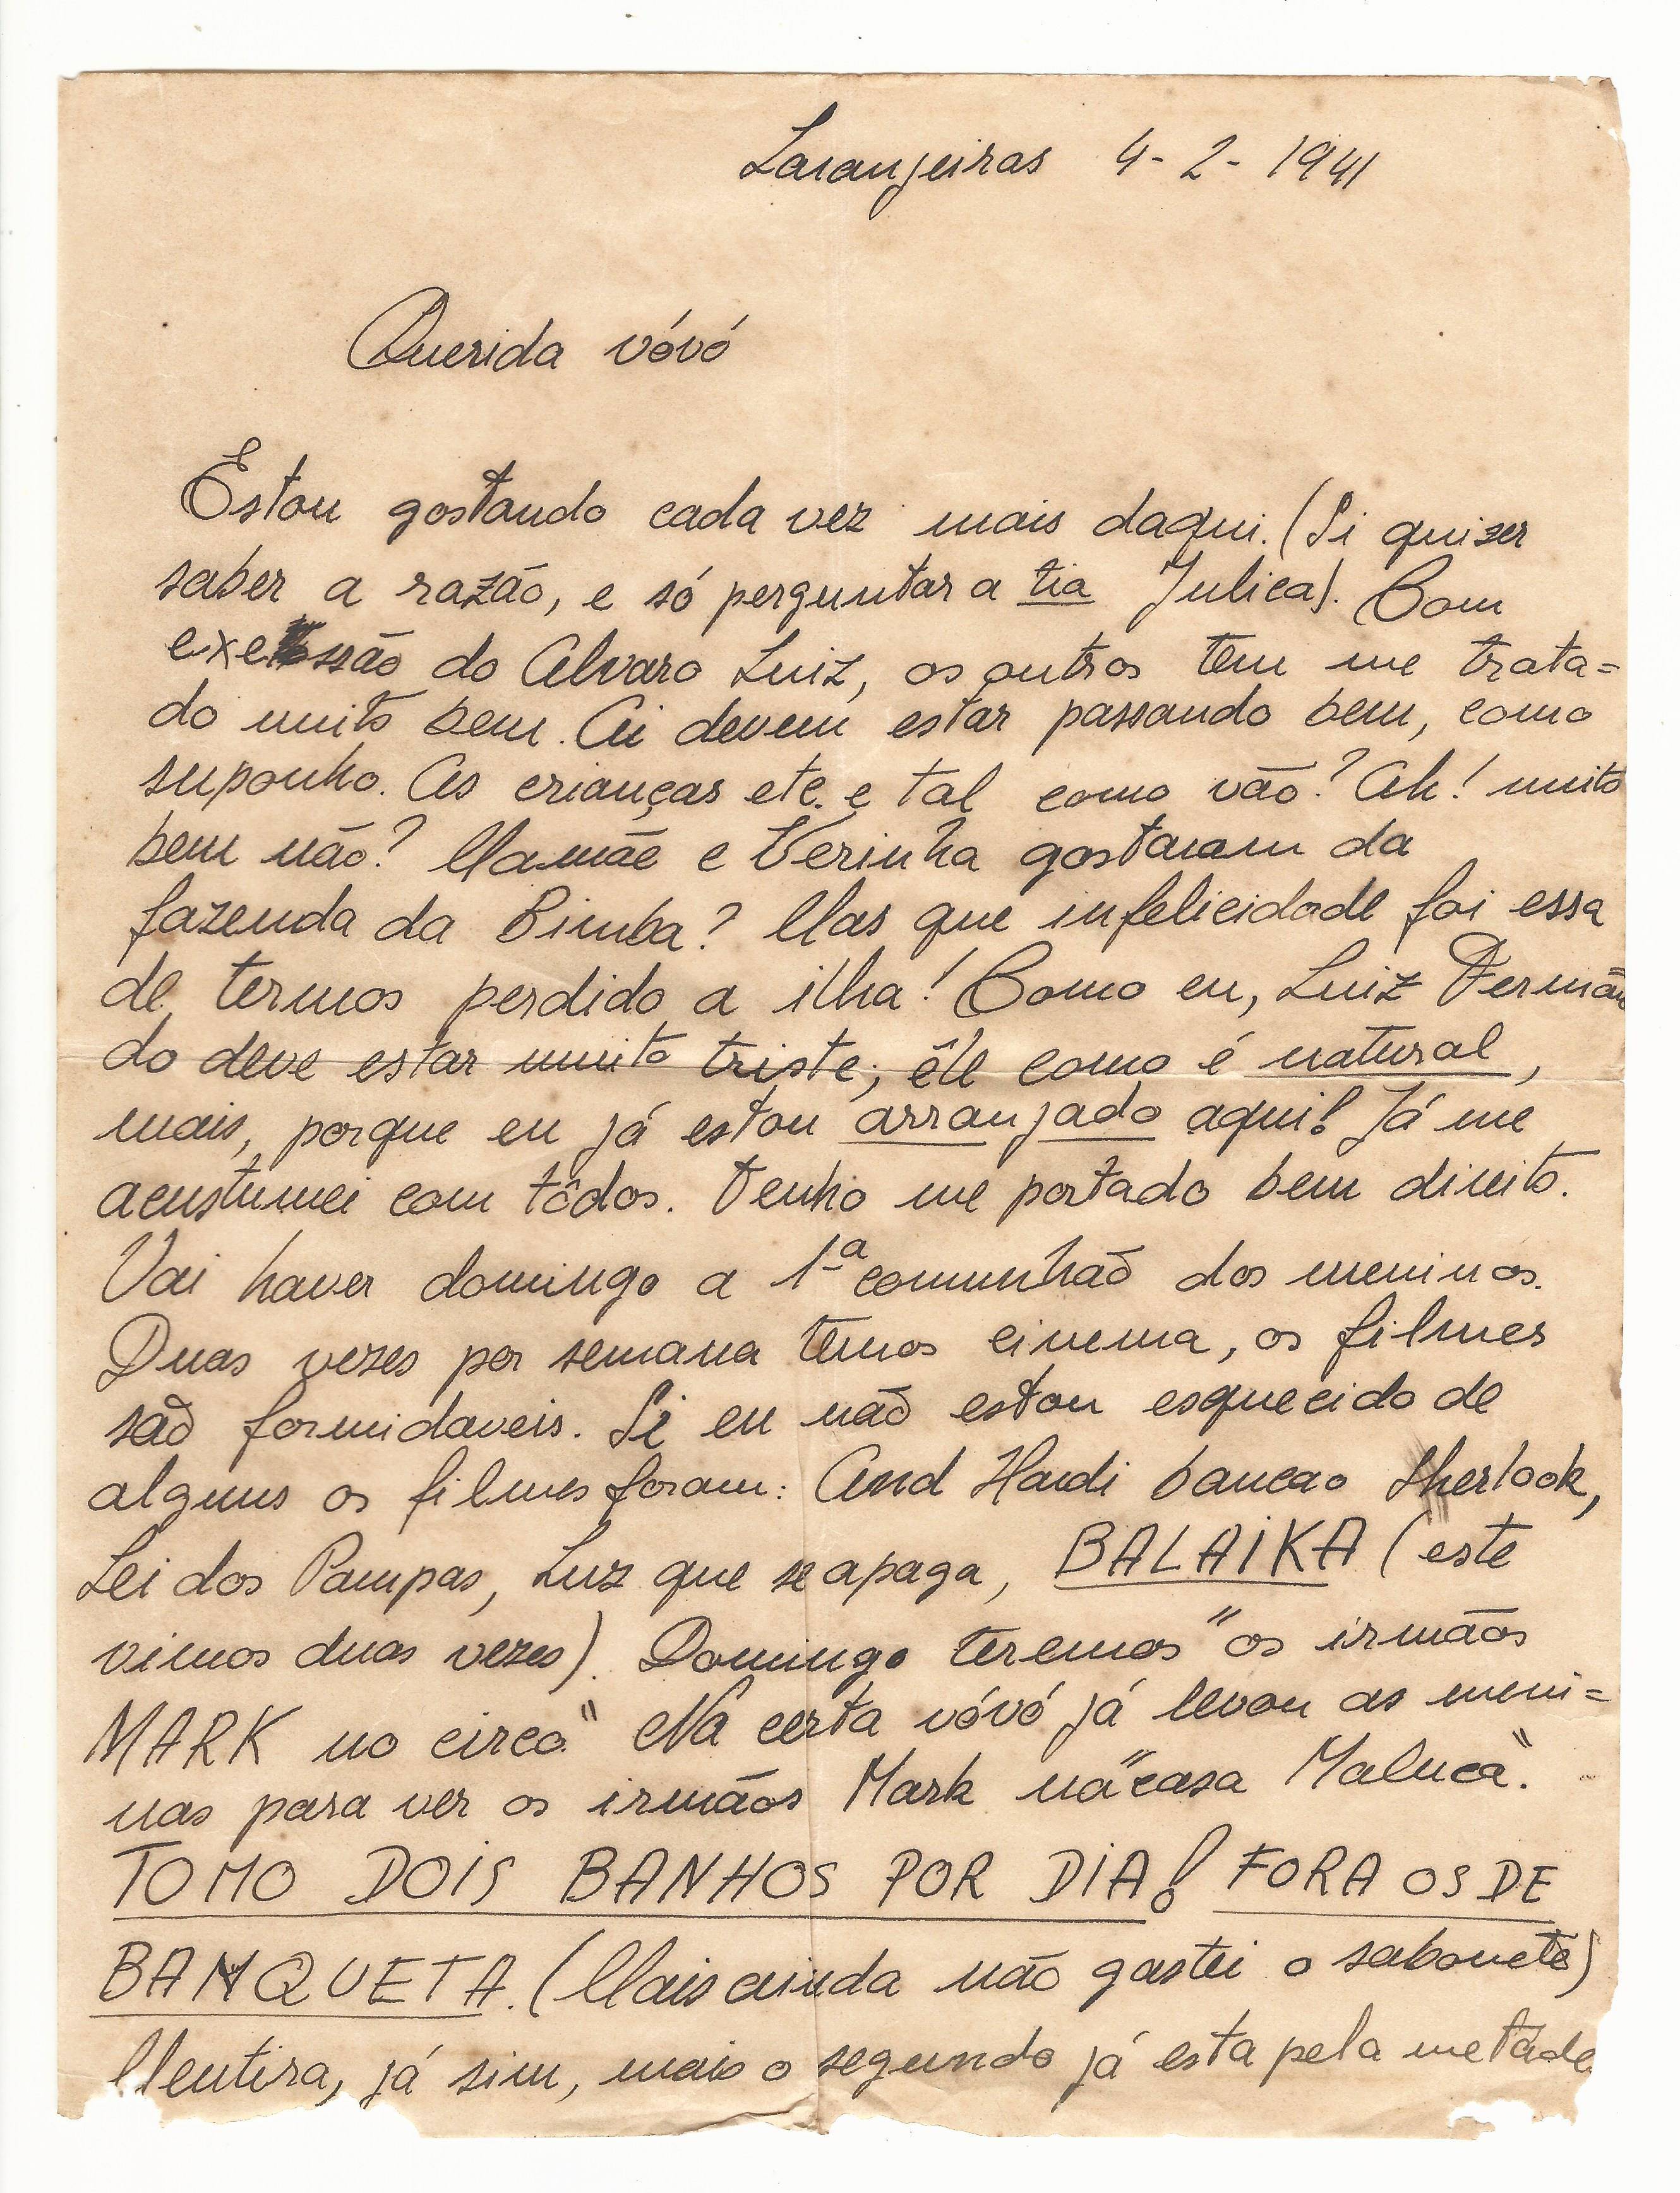 Laranjeiras 4-2-1941
Querida vóvó
Estou gostando cada vez mais daqui. (Si quizer
saber a razão, e só perguntar a tia Julica). Com
exessão do Alvaro Luiz, os outros tem me trata=
do muito bem. Ai devem estar passando bem, como
suponho. As crianças etc. e tal como vão? Ah! muito
bem não? Mamãe e Verinha gostaram da
fazenda da Bimba? Mas que infelicidade foi essa
de termos perdido a ilha! Como eu, Luiz Fernãn
do deve estar muito triste; êle como é natural,
mais, porque eu já estou arranjado aqui! Já me
acustumei com tôdos. Tenho me portado bem direito.
Vai haver domingo a 1ª comunhão dos meninos.
Duas vezes por semana temos cinema, os filmes
são formidaveis. Si eu não estou esquecido de
alguns os filmes foram: And Hardi bancao Sherlook,
Lei dos Pampas, Luz que se apaga, BALAIKA (este
vimos duas vezes). Domingo teremos "os irmãos
MARK no circo." Na certa vóvó já levou as meni=
nas para ver os irmãos Mark na "casa Maluca".
TOMO DOIS BANHOS POR DIA! FORA OS DE
BANQUETA. (Mais ainda não gastei o sabonete)
Mentira, já sim, mais o segundo já esta pela metade